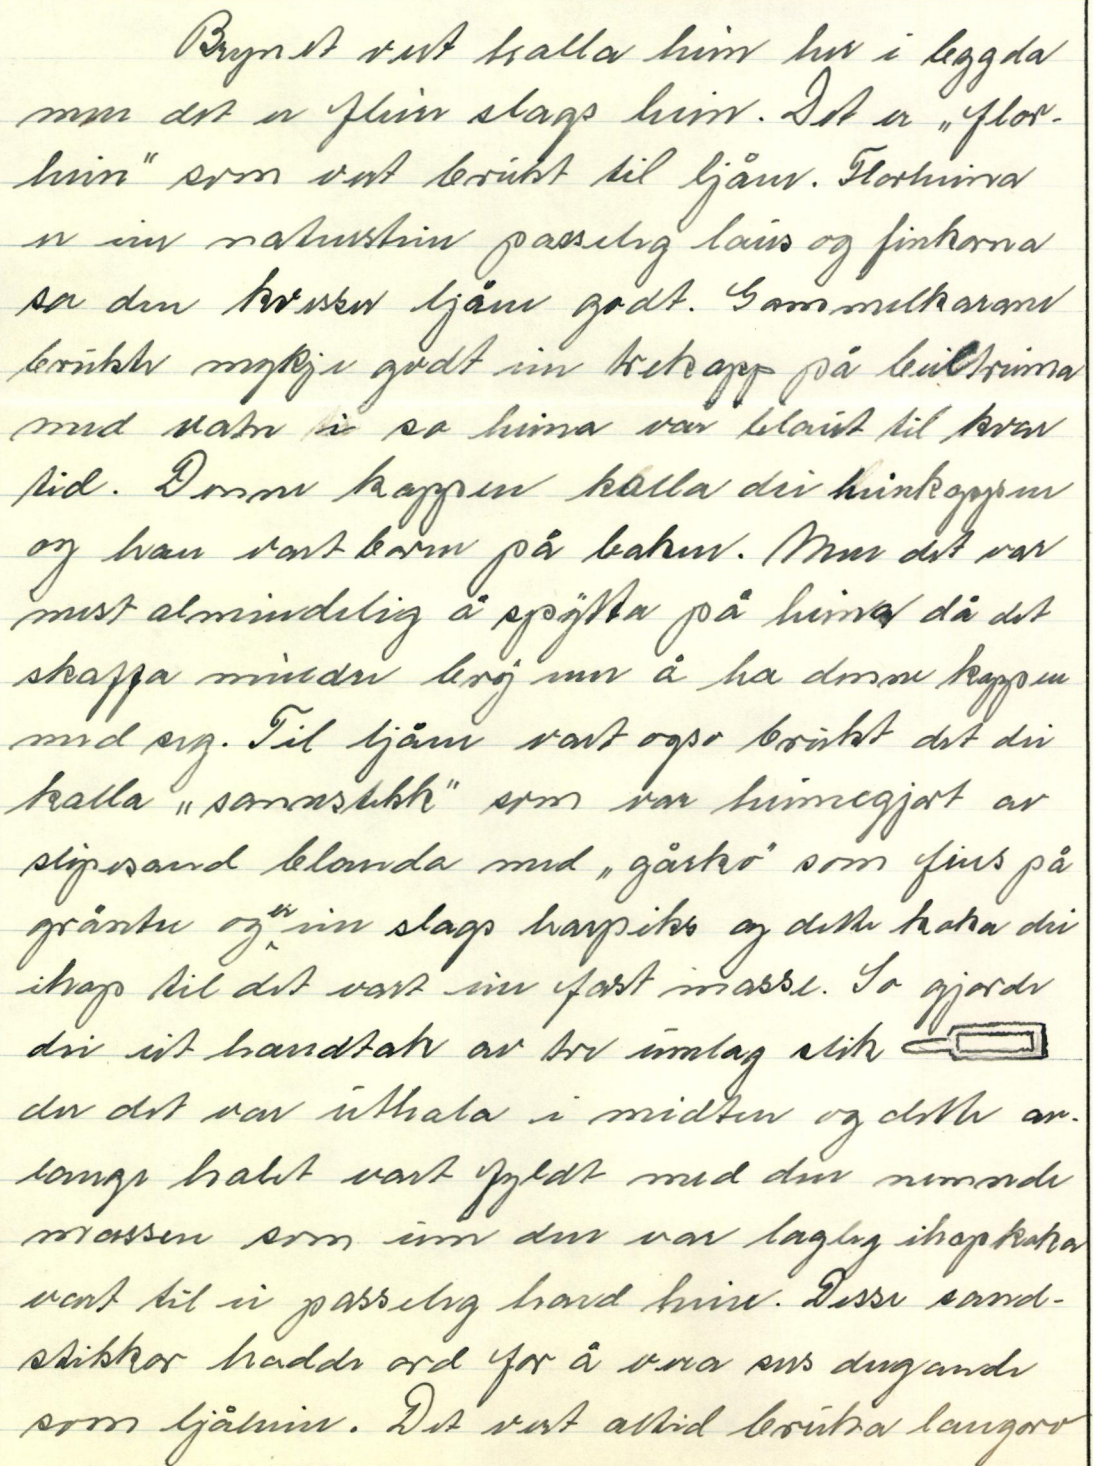 Brynet vert kalla hein her i bygda
men det er fleire slags hein. Det er „flor-
hein" som vert brukt til ljåen. Florheina
er ein naturstein passeleg laus og finkorna
so den kvesser ljåen godt. Gammelkarane
brukte mykje godt ein trekopp på beltreima
med vatn i so heina var blaut til kvar
tid. Denne koppen kalla dei heinkoppen
og han vart boren på baken. Men det var
mest almindelig å spytta på heina då det
skaffa mindre bry enn å ha denne koppen
med seg. Til ljåen vart ogso brukt det dei
kalla „sannstikk" som var heimegjort av
slipesand blanda med „gåsko" som fins på
gråntre og er ein slags harpiks og dette koka dei
ihop til det vart ein fast masse. So gjorde
dei eit handtak av tre umlag slik
der det var uthola i midten og dette av-
lange holet vart fyldt med den nemnde
massen som um den var lagleg ihopkoka
vart til ei passeleg hard hein. Desse sand-
stikkor hadde ord for å vera seis dugande
som ljåhein. Det vert altid bruka langorv